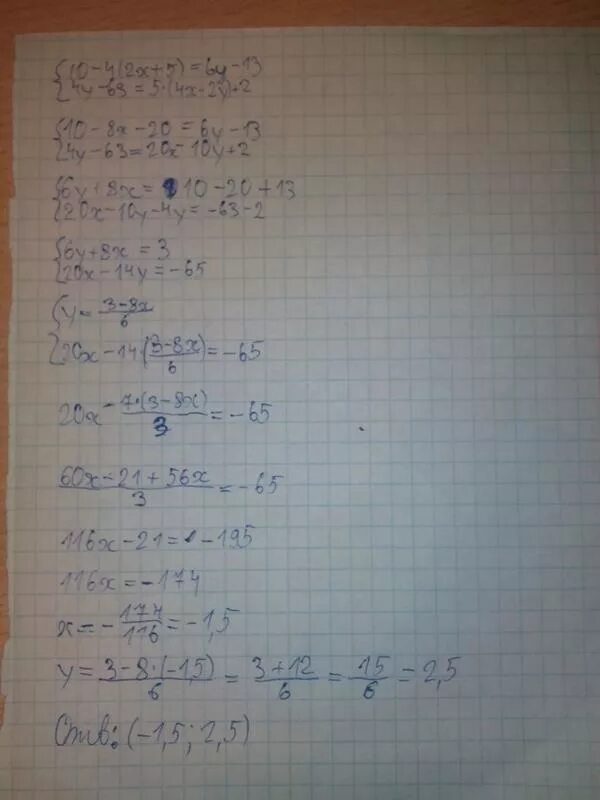 {10-4(2x+5)=6y-13
{4y-63=5·(4x-2y)+2
{10-8x-20=6y-13
{4y-63=20x-10y+2
{6y+8x=10-20+13
{20x-10y-4y=-63-2
{6y+8x=3
{20x-14y=-65
{y=(3-8x)/6
{20x-14·(3-8x)/6=-65
20x-7·(3-8x)/3=-65
(60x-21+56x)/3=-65
116x-21=-195
116x=-174
x=-174/116=-1,5
y=(3-8·(-1,5))/6=(3+12)/6=15/6=2,5
Отв: (-1,5; 2,5)